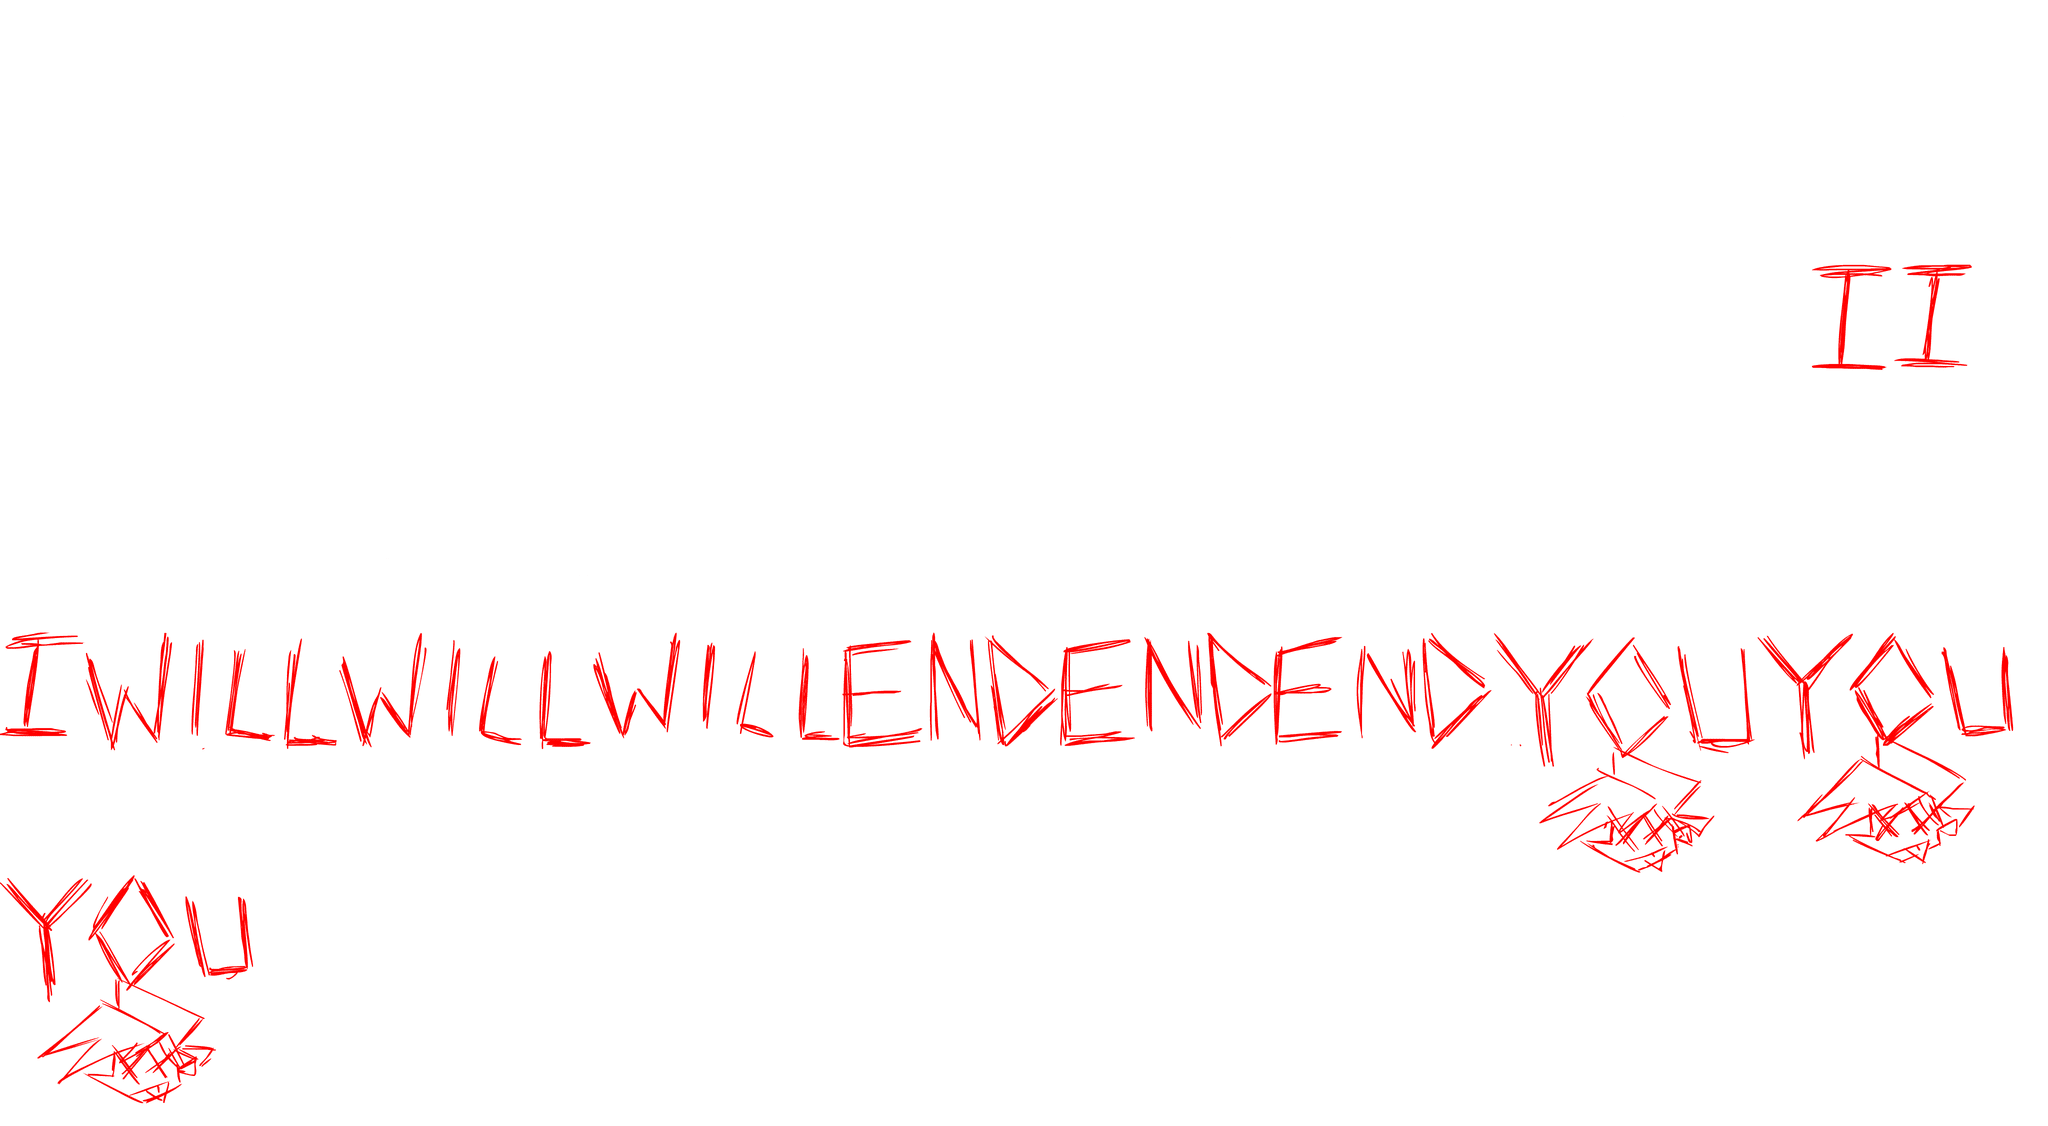 I I
I WILL WILL WILL END END END YOU YOU
YOU